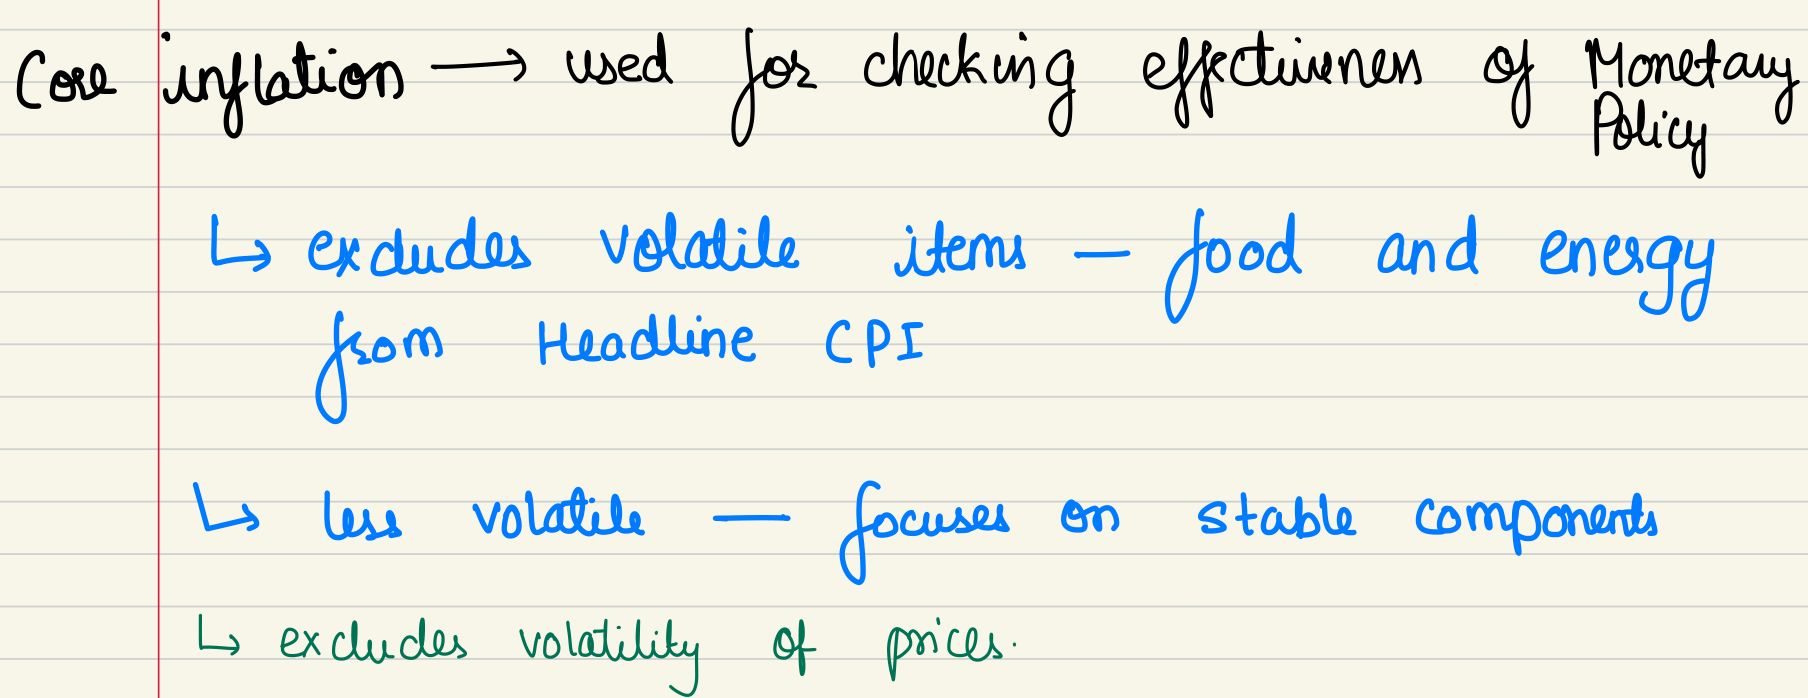 Core inflation → used for checking effectiveness of Monetary
Policy
↳ excludes volatile items — food and energy
from Headline CPI
↳ less volatile — focuses on stable components
↳ excludes volatility of prices.